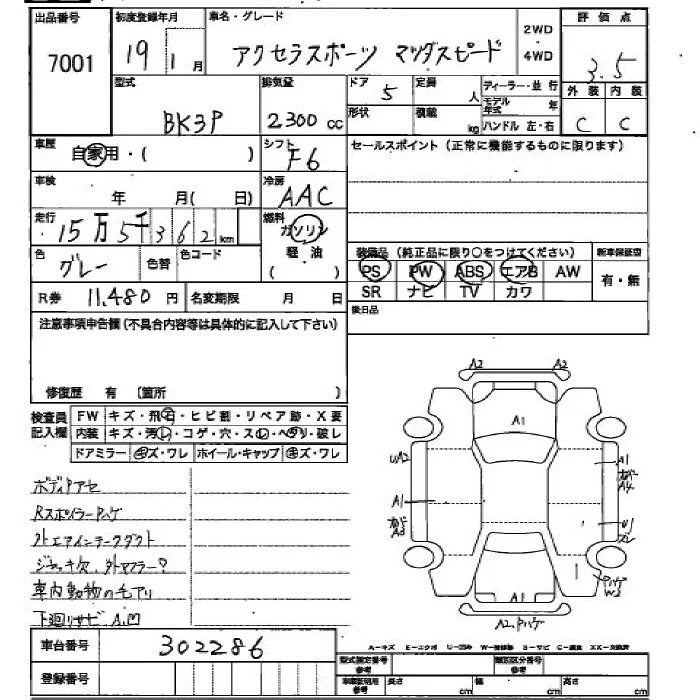 出品番号
7001
初度登録年月
19 1 月
車名・グレード
アクセラスポーツ マツダスピード
2WD
・
4WD
評価点
3.5
外装 内装
C C
型式
BK3P
排気量
2300 cc
ドア
5
形状
定員
人
積載
kg
ディーラー・並行
モデル年式 年
ハンドル 左・右
車歴
自家用・( )
シフト
F6
セールスポイント (正常に機能するものに限ります)
車検
年 月( 日)
冷房
AAC
走行
15万5千362km
燃料
ガソリン
軽油
( )
色
グレー
色替
色コード
装備品 (純正品に限り○をつけてください)
新車保証書
PS PW ABS エアB AW
有・無
SR ナビ TV カワ
R券 11,480 円
名変期限 月 日
後日品
注意事項申告欄(不具合内容等は具体的に記入して下さい)
修復歴 有 〔箇所 〕
検査員記入欄
FW キズ・飛石・ヒビ割・リペア跡・X要
内装 キズ・汚レ・コゲ・穴・スレ・ヘタリ・破レ
ドアミラー キズ・ワレ ホイール・キャップ キズ・ワレ
ボディPアセ
Rスポイラーハゲ
外エアインテークダクト
ジャッキ欠、外マフラー?
車内動物の毛アリ
下廻リサビ A.凹
A2 A2
A1
UA2
A1
A1
A4
A1
U1
ズレ
ハゲ
W3
A2.Pハゲ
車台番号
302286
登録番号
A-キズ E-エクボ U-凹み W-補修跡 S-サビ C-腐食 XX-交換済
型式指定番号
参考
類別区分番号
参考
車車証明用
参考
長さ cm
幅 cm
高さ cm